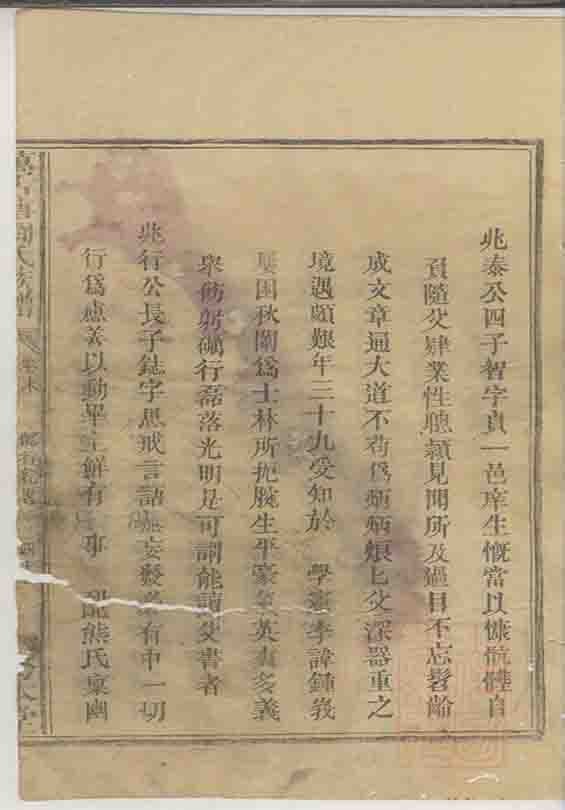 兆泰公四子智字貞一邑庠生慨當以慷骯髒自
負隨父肄業性聰穎見聞所及過目不忘髫齡
成文章通大道不苟爲炳炳烺烺父深器重之
境遇頗艱年三十九受知於 學憲李諱鍾峩
屢困秋闈爲士林所扼腕生平豪氣英爽多義
舉飭躬礪行磊落光明是可謂能讀父書者
兆行公長子鋕字思戒言語無妄發必有中一切
行爲慮善以動畢生鮮有事 配熊氏稟幽
氏族譜